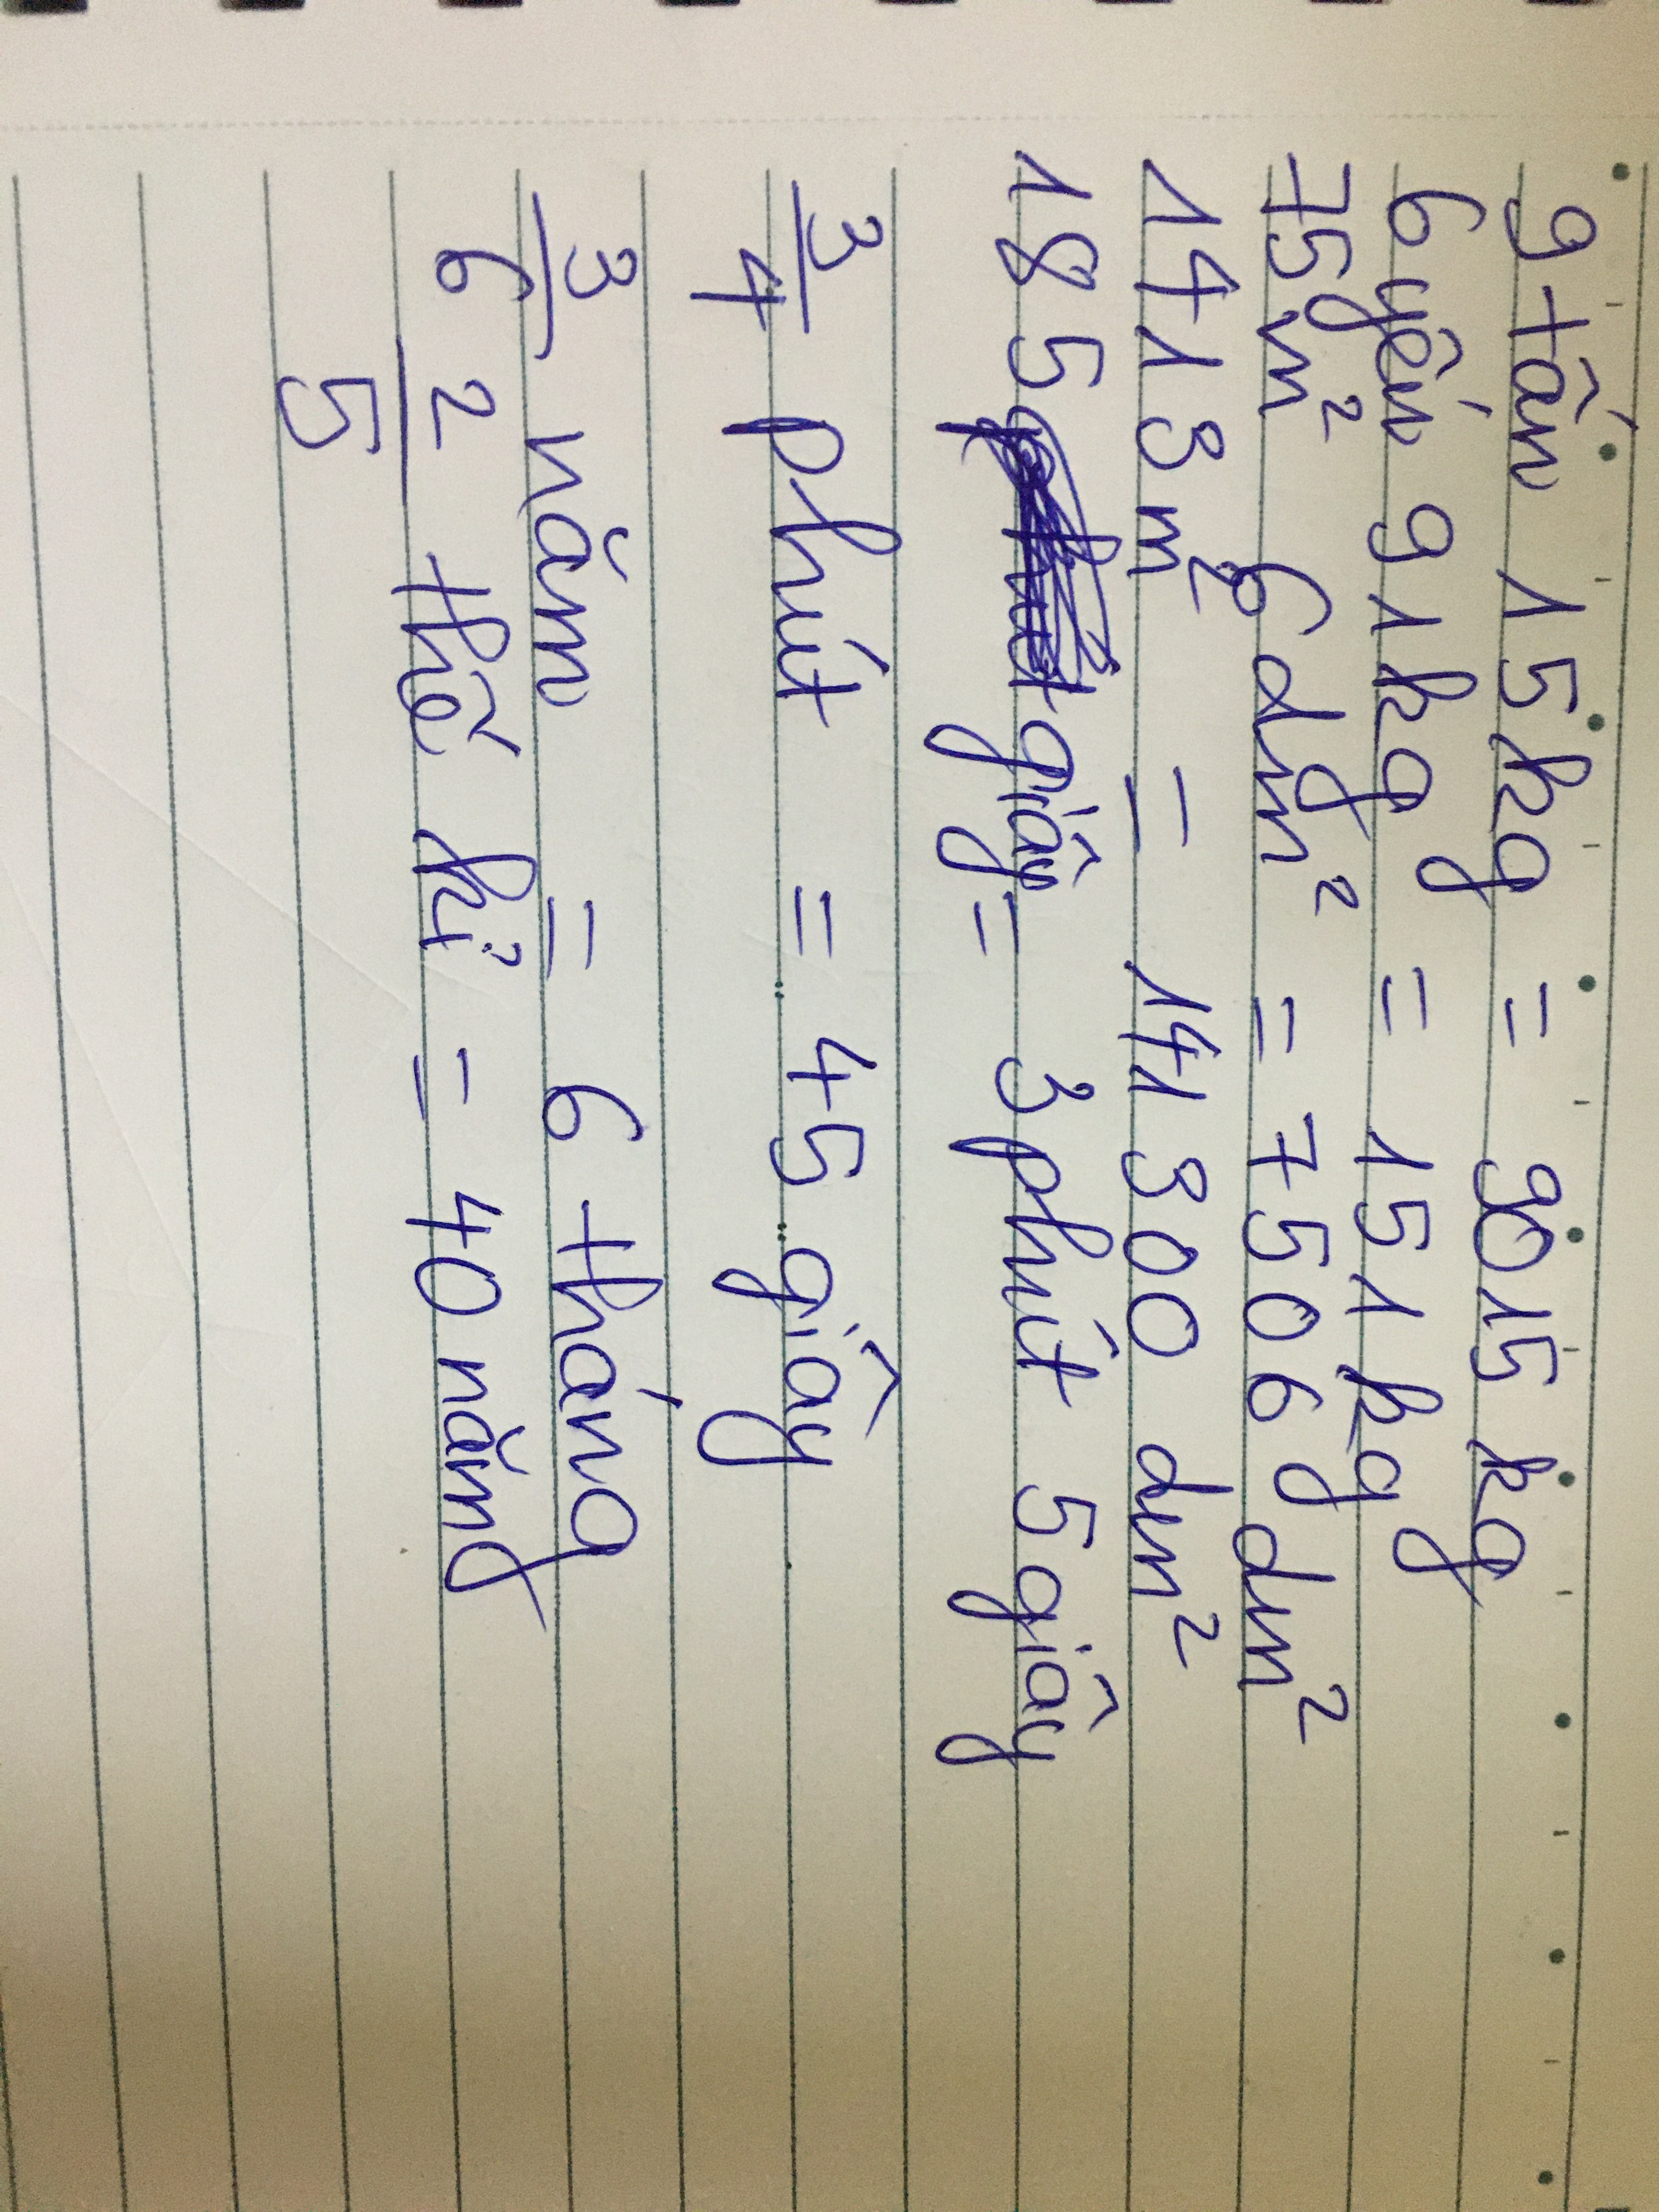 9 tấn 15kg = 9015 kg
6 yến 91kg = 151 kg
75m² 6dm² = 7506 dm²
1413m² = 141300 dm²
185 giây = 3 phút 5 giây
3/4 phút = 45 giây
3/6 năm = 6 tháng
2/5 thế kỉ = 40 năm